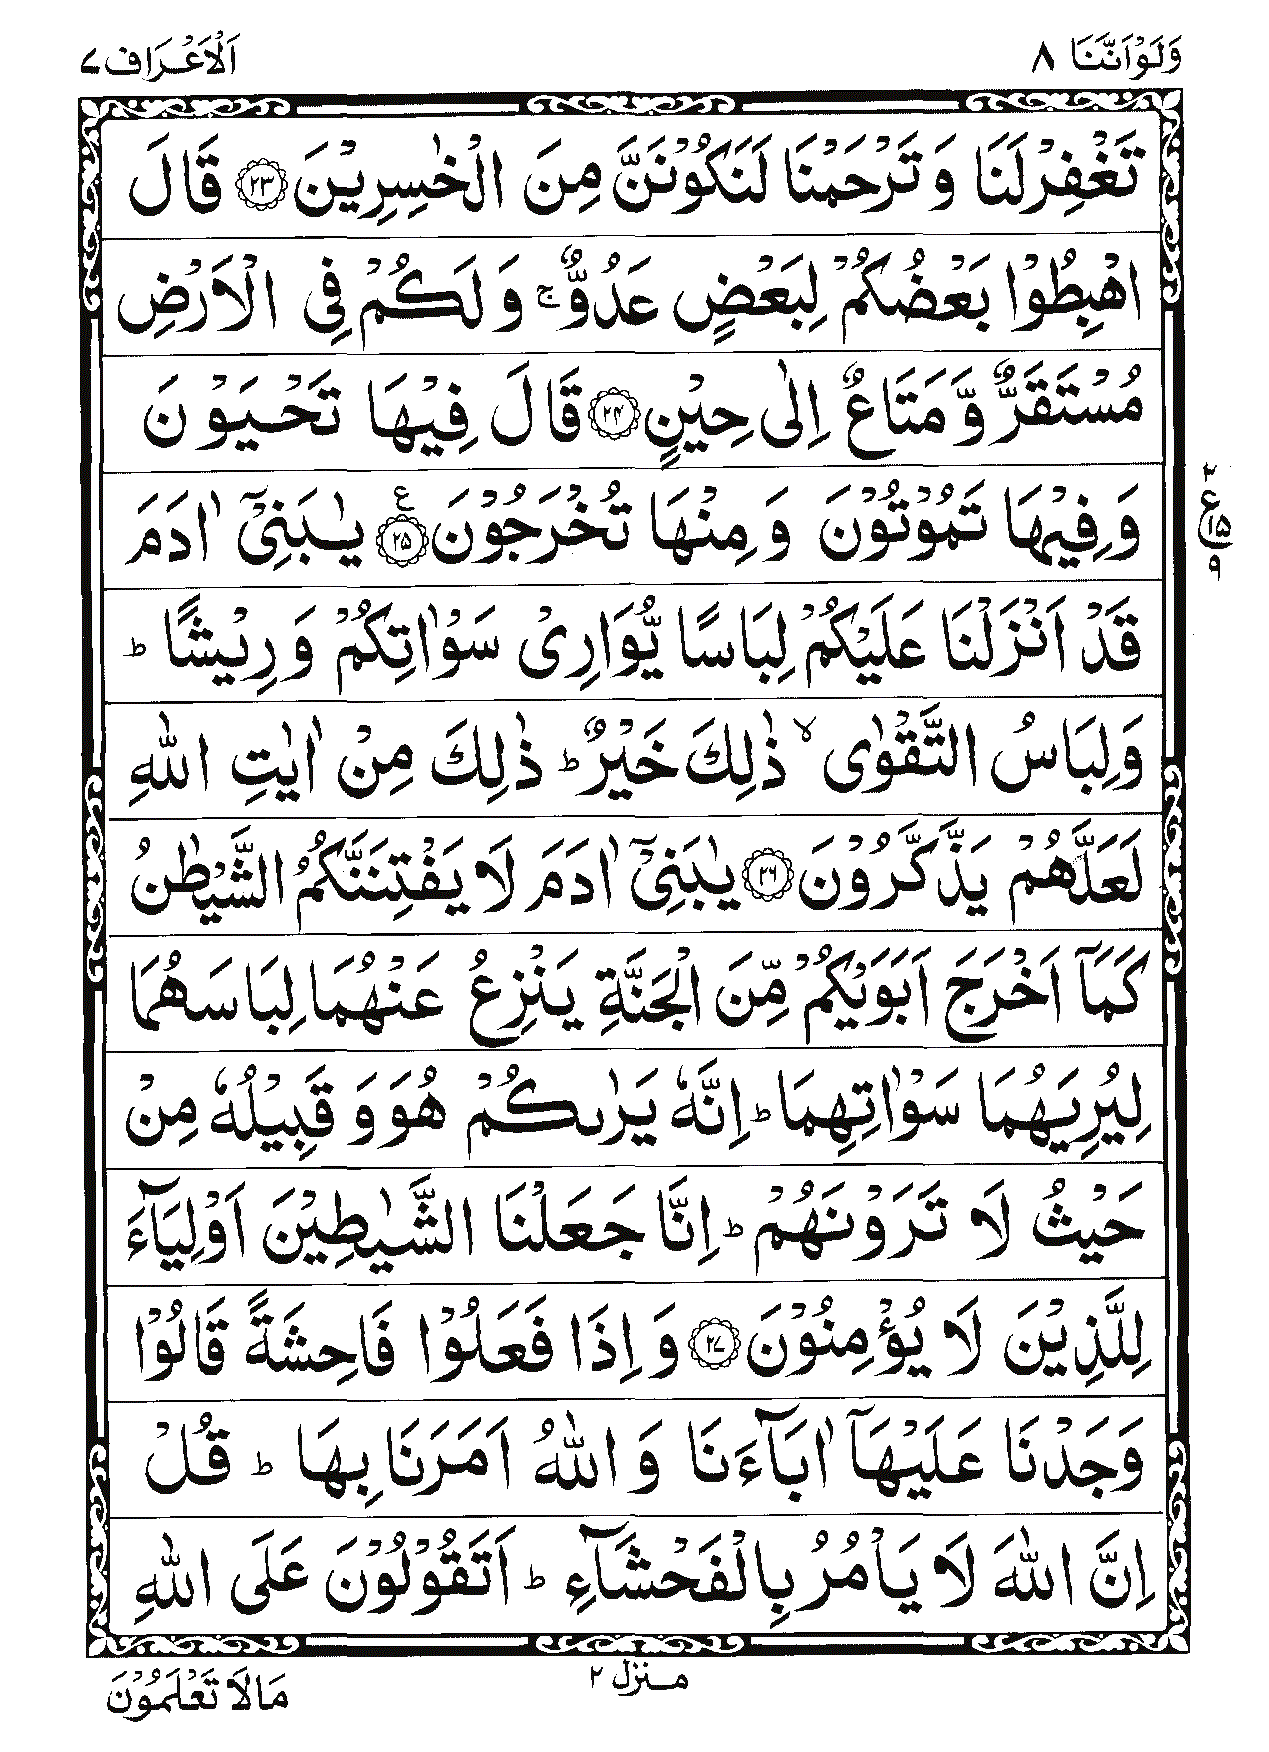 وَلَوْاَنَّنَا ٨
اَلْاَعْرَاف ٧
تَغْفِرْلَنَا وَ تَرْحَمْنَا لَنَكُوْنَنَّ مِنَ الْخٰسِرِيْنَ ۝٢٣ قَالَ
اهْبِطُوْا بَعْضُكُمْ لِبَعْضٍ عَدُوٌّ ۚ وَ لَكُمْ فِی الْاَرْضِ
مُسْتَقَرٌّ وَّ مَتَاعٌ اِلٰی حِيْنٍ ۝٢٤ قَالَ فِيْهَا تَحْيَوْنَ
وَ فِيْهَا تَمُوْتُوْنَ وَ مِنْهَا تُخْرَجُوْنَ ۝٢٥ ع يٰبَنِیْۤ اٰدَمَ
٢
ع
١٥
٩
قَدْ اَنْزَلْنَا عَلَيْكُمْ لِبَاسًا يُّوَارِیْ سَوْاٰتِكُمْ وَ رِيْشًا ؕ
وَلِبَاسُ التَّقْوٰی ۙ ذٰلِكَ خَيْرٌ ؕ ذٰلِكَ مِنْ اٰيٰتِ اللّٰهِ
لَعَلَّهُمْ يَذَّكَّرُوْنَ ۝٢٦ يٰبَنِیْۤ اٰدَمَ لَا يَفْتِنَنَّكُمُ الشَّيْطٰنُ
كَمَاۤ اَخْرَجَ اَبَوَيْكُمْ مِّنَ الْجَنَّةِ يَنْزِعُ عَنْهُمَا لِبَاسَهُمَا
لِيُرِيَهُمَا سَوْاٰتِهِمَا ؕ اِنَّهٗ يَرٰىكُمْ هُوَ وَ قَبِيْلُهٗ مِنْ
حَيْثُ لَا تَرَوْنَهُمْ ؕ اِنَّا جَعَلْنَا الشَّيٰطِيْنَ اَوْلِيَآءَ
لِلَّذِيْنَ لَا يُؤْمِنُوْنَ ۝٢٧ وَ اِذَا فَعَلُوْا فَاحِشَةً قَالُوْا
وَجَدْنَا عَلَيْهَاۤ اٰبَآءَنَا وَ اللّٰهُ اَمَرَنَا بِهَا ؕ قُلْ
اِنَّ اللّٰهَ لَا يَاْمُرُ بِالْفَحْشَآءِ ؕ اَتَقُوْلُوْنَ عَلَی اللّٰهِ
منزل ٢
مَالَا تَعْلَمُوْنَ